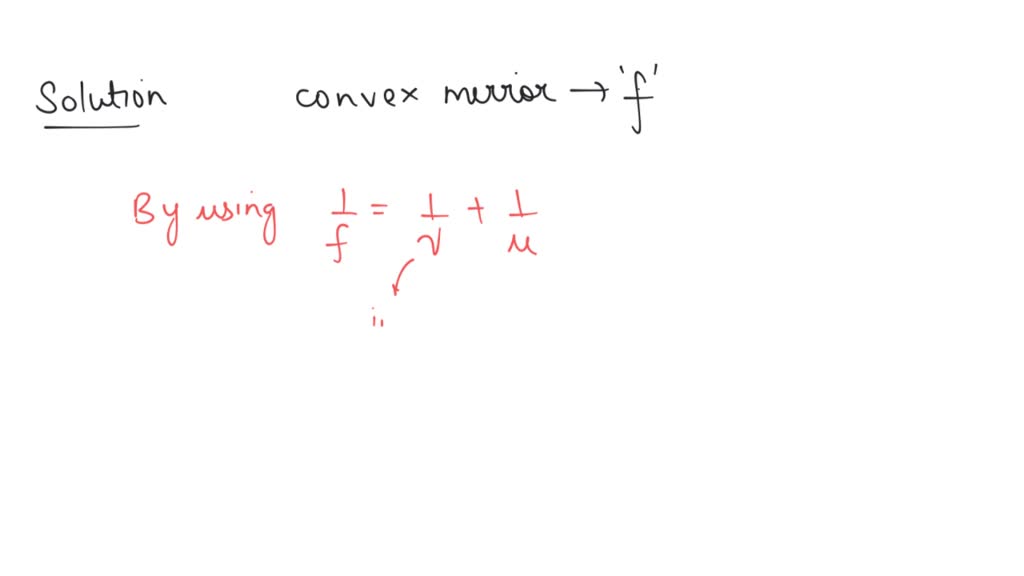 Solution convex merrior → 'f'
By using 1/f = 1/v + 1/u